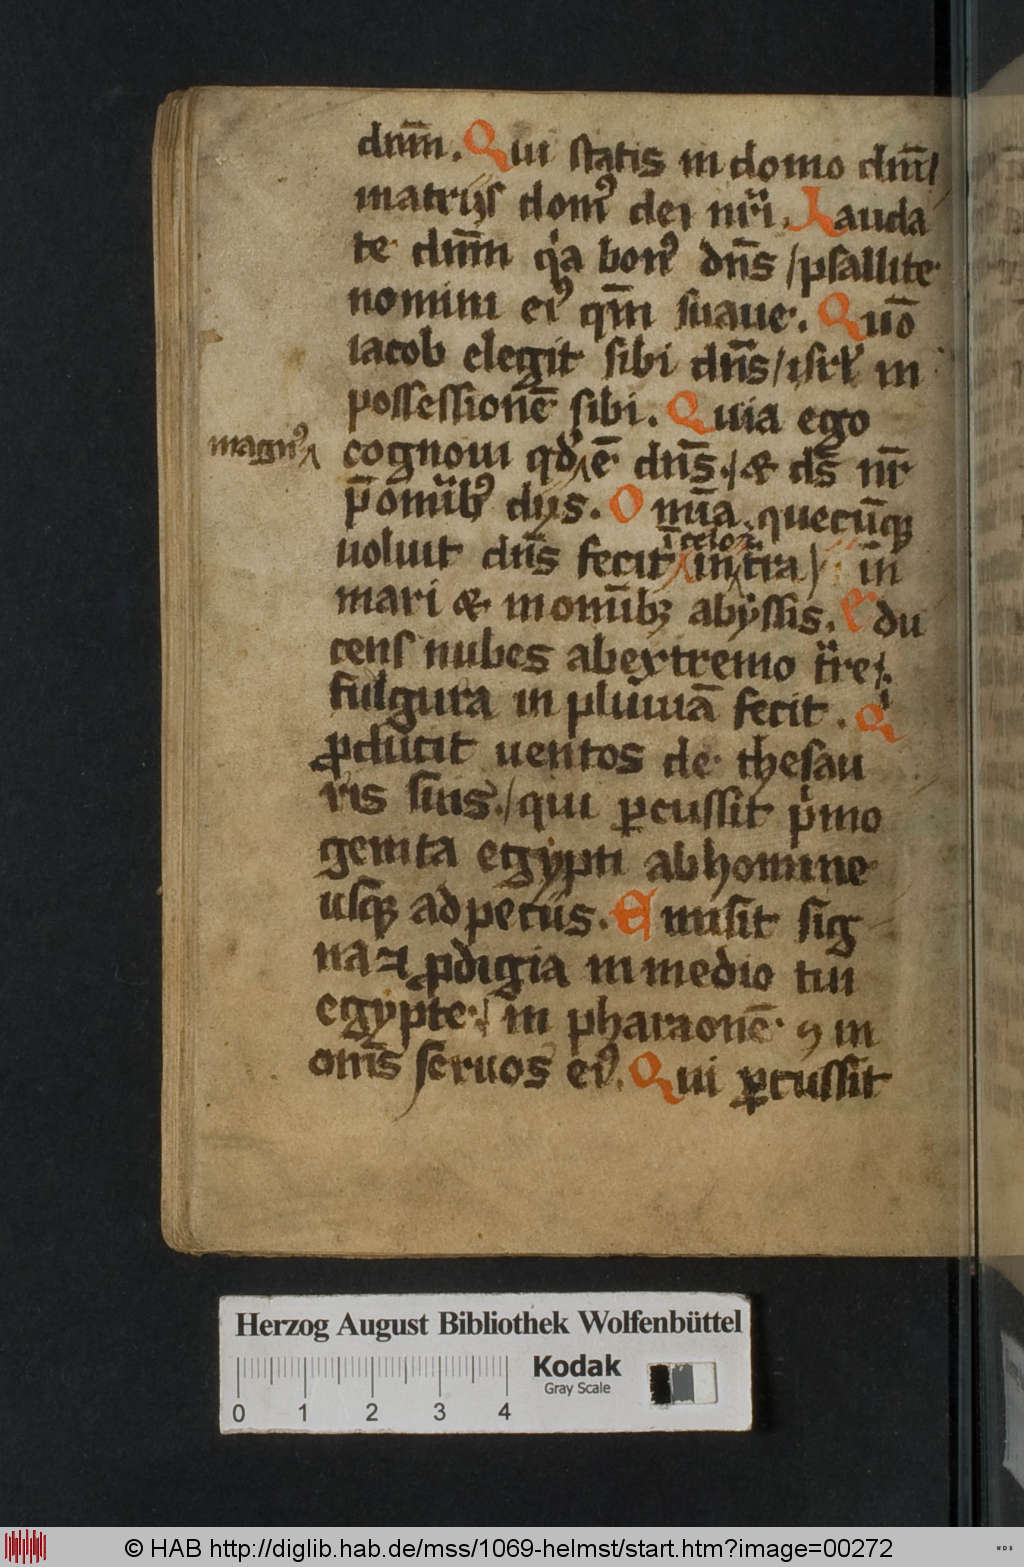 dnm̄. Qui statis in domo dnī /
in atrijs domꝰ dei nr̄i. Lauda
te dnm̄ qia bonꝰ dn̄s / psallite
nomini eiꝰ qm̄ suaue. Quō
iacob elegit sibi dn̄s / isrl̄ in
possessionē sibi. Quia ego
magnꝰ
cognoui qd ē dn̄s. / & ds̄ nr̄
p̄ omībꝰ dijs. Omīa quecūqꝫ
ī celo
uoluit dn̄s fecit in tr̄a / in
mari & in omībꝫ abyssis. Edu
cens nubes ab extremo tr̄re /
fulgura in pluuiā fecit. Qi
ꝓducit uentos de thesau
ris suis. / qui ꝑcussit pimo
genita egypti ab homine
usqꝫ ad pecus. Emisit sig
na ⁊ ꝓdigia in medio tui
egypte / in pharaonē ⁊ in
oms̄ seruos eiꝰ. Qui ꝑcussit
Herzog August Bibliothek Wolfenbüttel
Kodak
Gray Scale
0 1 2 3 4
© HAB http://diglib.hab.de/mss/1069-helmst/start.htm?image=00272